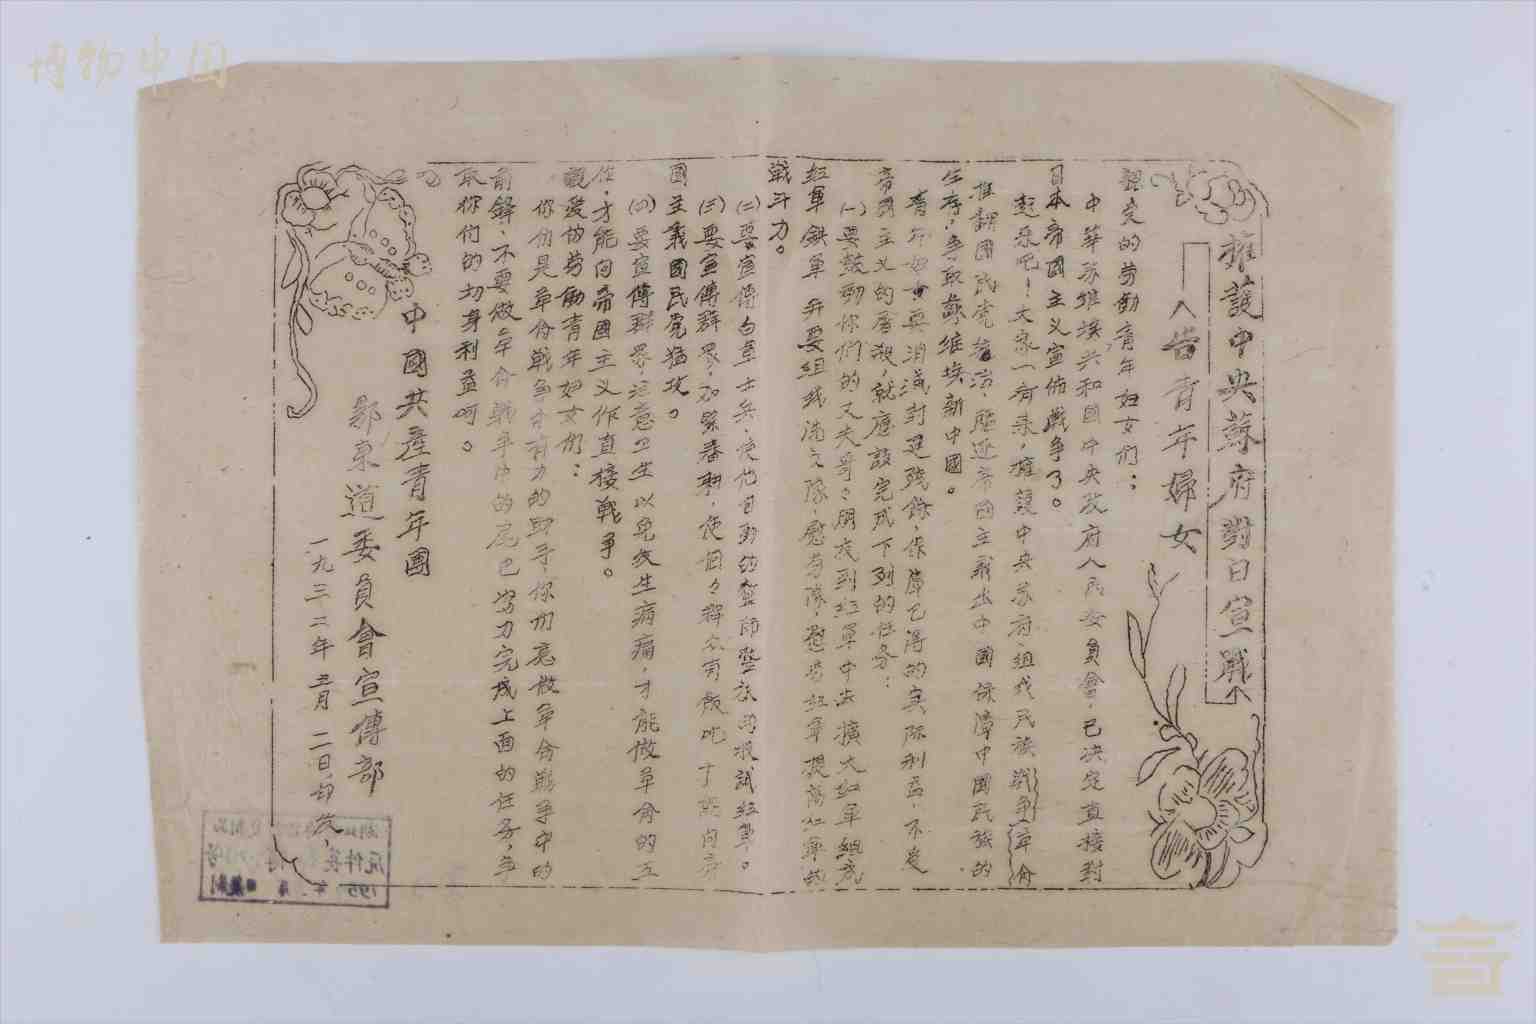 擁護中央蘇府對日宣戰
八告青年婦女
親爱的劳動青年妇女们：
中華苏維埃共和國中央政府人民委員會，已決定直接對
日本帝國主义宣佈戰争了。
起来吧！大家一有来，擁護中央苏府，组织民族战争，革命
推翻國民党统治，驅逐帝国主義出中國保障中國民族的
生存，争取蘇維埃新中國。
青年妇女要消滅封建残餘，保障已得的实际利益，不受
帝國主义的屠殺，就應該完成下列的任务：
㈠要鼓動你們的丈夫哥々朋友到红軍中去擴大红軍组成
红軍鉄軍并要组织洗衣隊，慰劳隊，慰劳红軍提高红軍的
戰斗力。
㈡要宣傳白軍士兵，使他自動的整師整旅的投誠红軍。
㈢要宣傳群眾，加緊春耕，使個々群众有飯吃，才能向帝
國主義國民党猛攻。
㈣要宣傳群眾，注意卫生以免發生病痛，才能做革命的工
作，才能向帝國主义作直接戰争。
親愛的劳動青年妇女们：
你们是革命戰争中有力的助手，你们應做革命戰争中的
前鋒，不要做革命戰争中的尾巴努力完成上面的任务，争
取你们的切身利益呵。
中國共產青年團
鄂東道委員會宣傳部
一九三二年三月二日印发
博物中国